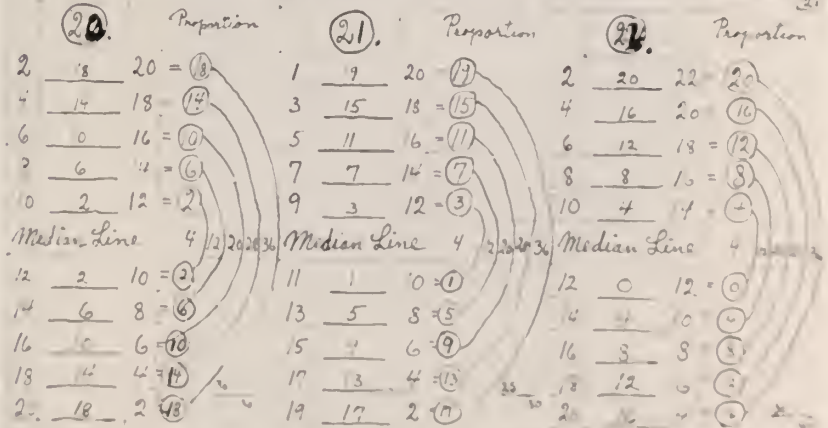 20. Proportion
2 18 20 = 18
4 14 18 = 14
6 0 16 = 10
6 = 6
10 2 12 = 2
Median Line 4 12 20 28 36
12 2 10 = 2
14 6 8 = 6
16 6 = 10
18 14 4 = 14
2 18 2 = 18
21. Proportion
1 19 20 = 19
3 15 18 = 15
5 11 16 = 11
7 7 14 = 7
9 3 12 = 3
Median Line 4 12 20 28 36
11 1 10 = 1
13 5 8 = 5
15 6 = 9
17 13 4 = 13
19 17 2 = 17
Proportion
2 20 22 = 20
4 16 20 = 16
6 12 18 = 12
8 8 = 8
10 4 = 4
Median Line 4
12 0 12 = 0
16 8 8 = 8
18 12